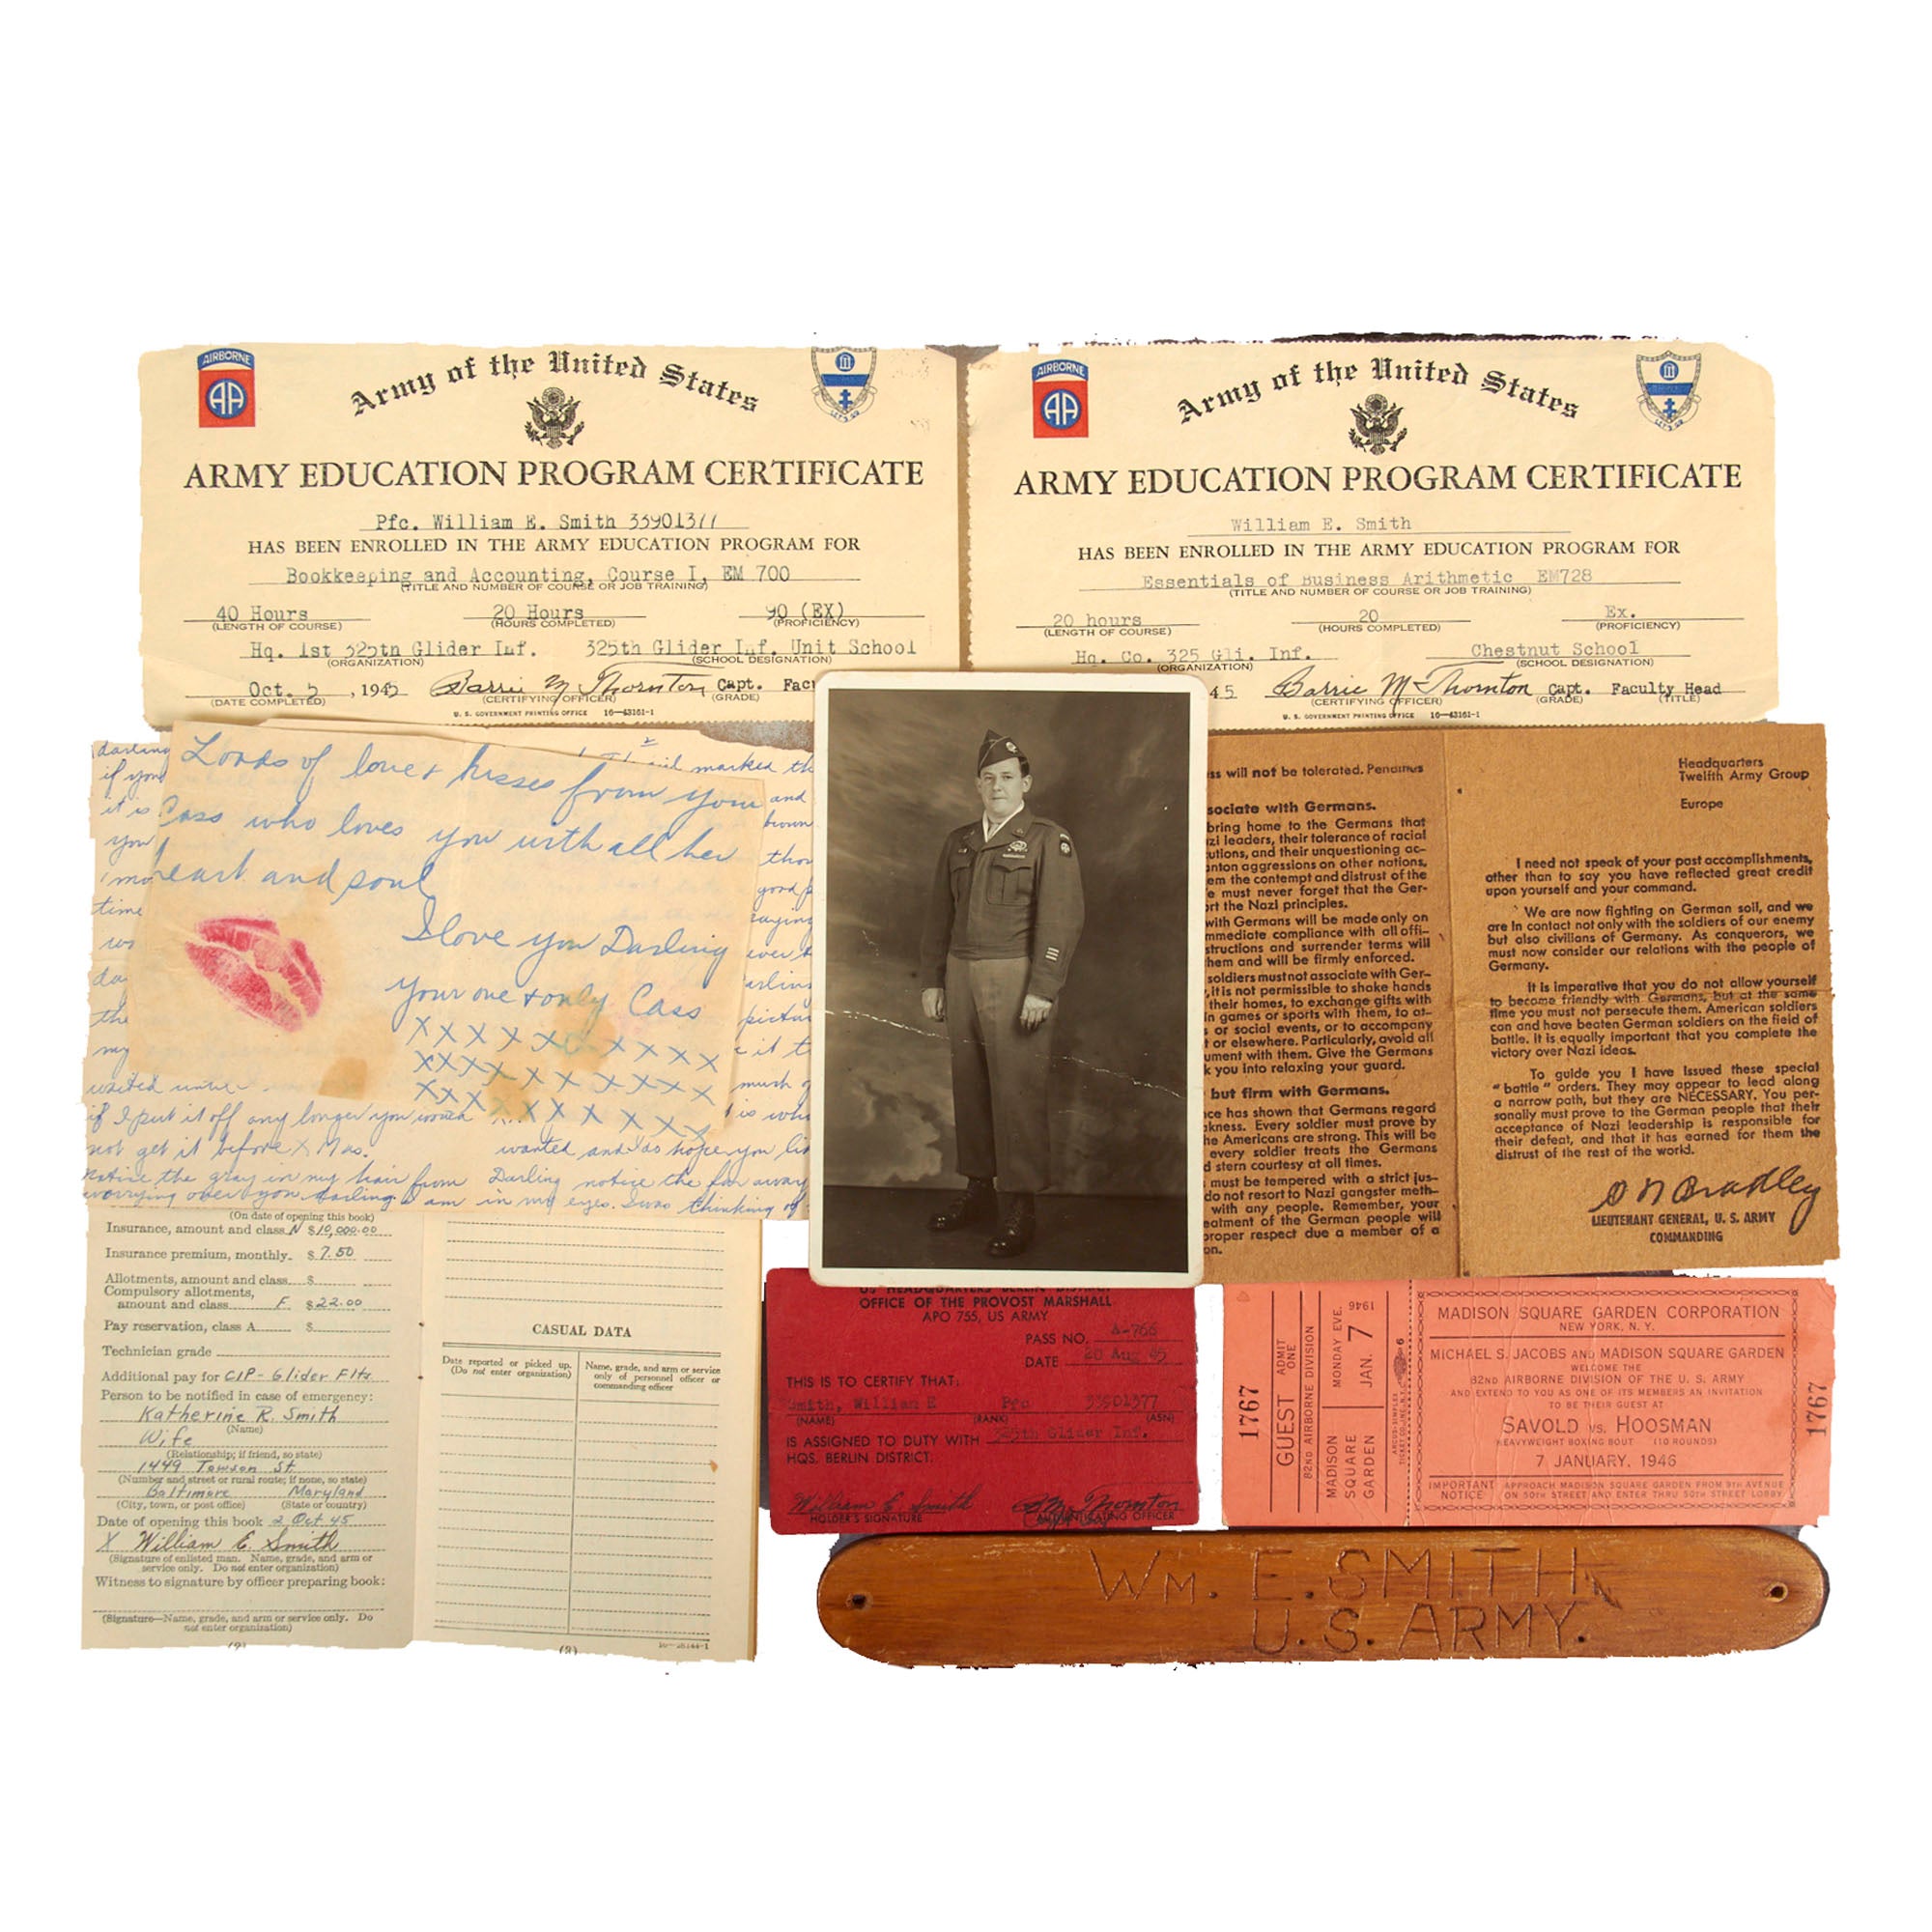 AIRBORNE
AA
Army of the United States
LET'S GO
ARMY EDUCATION PROGRAM CERTIFICATE
Pfc. William E. Smith 33901377
HAS BEEN ENROLLED IN THE ARMY EDUCATION PROGRAM FOR
Bookkeeping and Accounting, Course I, EM 700
(TITLE AND NUMBER OF COURSE OR JOB TRAINING)
40 Hours 20 Hours 90 (EX)
(LENGTH OF COURSE) (HOURS COMPLETED) (PROFICIENCY)
Hq. 1st 325th Glider Inf. 325th Glider Inf. Unit School
(ORGANIZATION) (SCHOOL DESIGNATION)
Oct. 5 , 1945 Barrie M Thornton Capt. Fac
(DATE COMPLETED) (CERTIFYING OFFICER) (GRADE)
U. S. GOVERNMENT PRINTING OFFICE 16-43161-1
AIRBORNE
AA
Army of the United States
LET'S GO
ARMY EDUCATION PROGRAM CERTIFICATE
William E. Smith
HAS BEEN ENROLLED IN THE ARMY EDUCATION PROGRAM FOR
Essentials of Business Arithmetic EM728
(TITLE AND NUMBER OF COURSE OR JOB TRAINING)
20 hours 20 Ex.
(LENGTH OF COURSE) (HOURS COMPLETED) (PROFICIENCY)
Hq. Co. 325 Gli. Inf. Chestnut School
(ORGANIZATION) (SCHOOL DESIGNATION)
45 Barrie M Thornton Capt. Faculty Head
(CERTIFYING OFFICER) (GRADE) (TITLE)
U. S. GOVERNMENT PRINTING OFFICE 16-43161-1
Loads of love & kisses from your
Cass who loves you with all her
heart and soul
I love you Darling
Your one & only Cass
X X X X X X X X X
XXXX X X X X X X
XXX X X X X X X
darling
if you
it is
you
time
da
the
my
marked th
and
brown
good
saying
ever
picture
it t
much
is who
if I put it off any longer you would
not get it before X Mas.
wanted and do hope you li
notice the gray in my hair from
worrying over you darling
Darling notice the far away
am in my eyes. I was thinking of
(On date of opening this book)
Insurance, amount and class N $10,000.00
Insurance premium, monthly. $ 7.50
Allotments, amount and class $
Compulsory allotments,
amount and class F $22.00
Pay reservation, class A $
Technician grade
Additional pay for CIP - Glider Flts
Person to be notified in case of emergency:
Katherine R. Smith
(Name)
Wife
(Relationship; if friend, so state)
1449 Towson St
(Number and street or rural route; if none, so state)
Baltimore Maryland
(City, town, or post office) (State or country)
Date of opening this book 2 Oct 45
X William E. Smith
(Signature of enlisted man. Name, grade, and arm or
service only. Do not enter organization)
Witness to signature by officer preparing book:
(Signature—Name, grade, and arm or service only. Do
not enter organization)
(2)
CASUAL DATA
Date reported or picked up.
(Do not enter organization)
Name, grade, and arm or service
only of personnel officer or
commanding officer
(3)
16-28144-1
ss will not be tolerated. Penalties
sociate with Germans.
bring home to the Germans that
zi leaders, their tolerance of racial
utions, and their unquestioning ac-
anton aggressions on other nations,
em the contempt and distrust of the
e must never forget that the Ger-
rt the Nazi principles.
with Germans will be made only on
mmediate compliance with all offi-
structions and surrender terms will
hem and will be firmly enforced.
soldiers must not associate with Ger-
, it is not permissible to shake hands
their homes, to exchange gifts with
n games or sports with them, to at-
s or social events, or to accompany
t or elsewhere. Particularly, avoid all
ument with them. Give the Germans
k you into relaxing your guard.
but firm with Germans.
ce has shown that Germans regard
kness. Every soldier must prove by
he Americans are strong. This will be
every soldier treats the Germans
d stern courtesy at all times.
must be tempered with a strict jus-
do not resort to Nazi gangster meth-
with any people. Remember, your
eatment of the German people will
proper respect due a member of a
on.
Headquarters
Twelfth Army Group
Europe
I need not speak of your past accomplishments,
other than to say you have reflected great credit
upon yourself and your command.
We are now fighting on German soil, and we
are in contact not only with the soldiers of our enemy
but also civilians of Germany. As conquerors, we
must now consider our relations with the people of
Germany.
It is imperative that you do not allow yourself
to become friendly with Germans, but at the same
time you must not persecute them. American soldiers
can and have beaten German soldiers on the field of
battle. It is equally important that you complete the
victory over Nazi ideas.
To guide you I have issued these special
"battle" orders. They may appear to lead along
a narrow path, but they are NECESSARY. You per-
sonally must prove to the German people that their
acceptance of Nazi leadership is responsible for
their defeat, and that it has earned for them the
distrust of the rest of the world.
O N Bradley
LIEUTENANT GENERAL, U. S. ARMY
COMMANDING
US HEADQUARTERS BERLIN DISTRICT
OFFICE OF THE PROVOST MARSHALL
APO 755, US ARMY
PASS NO. A-766
DATE 20 Aug 45
THIS IS TO CERTIFY THAT:
Smith, William E Pfc 33901377
(NAME) (RANK) (ASN)
IS ASSIGNED TO DUTY WITH 325th Glider Inf.
HQS. BERLIN DISTRICT.
William E Smith B M Thornton
HOLDER'S SIGNATURE AUTHENTICATING OFFICER
1767
GUEST ADMIT ONE
82ND AIRBORNE DIVISION
MONDAY EVE.
JAN. 7
1946
MADISON
SQUARE
GARDEN
6
MADISON SQUARE GARDEN CORPORATION
NEW YORK, N. Y.
MICHAEL S. JACOBS AND MADISON SQUARE GARDEN
WELCOME THE
82ND AIRBORNE DIVISION OF THE U. S. ARMY
AND EXTEND TO YOU AS ONE OF ITS MEMBERS AN INVITATION
TO BE THEIR GUEST AT
SAVOLD VS. HOOSMAN
HEAVYWEIGHT BOXING BOUT (10 ROUNDS)
7 JANUARY, 1946
IMPORTANT NOTICE APPROACH MADISON SQUARE GARDEN FROM 9TH AVENUE
ON 50TH STREET AND ENTER THRU 50TH STREET LOBBY
1767
WM. E. SMITH
U.S. ARMY.